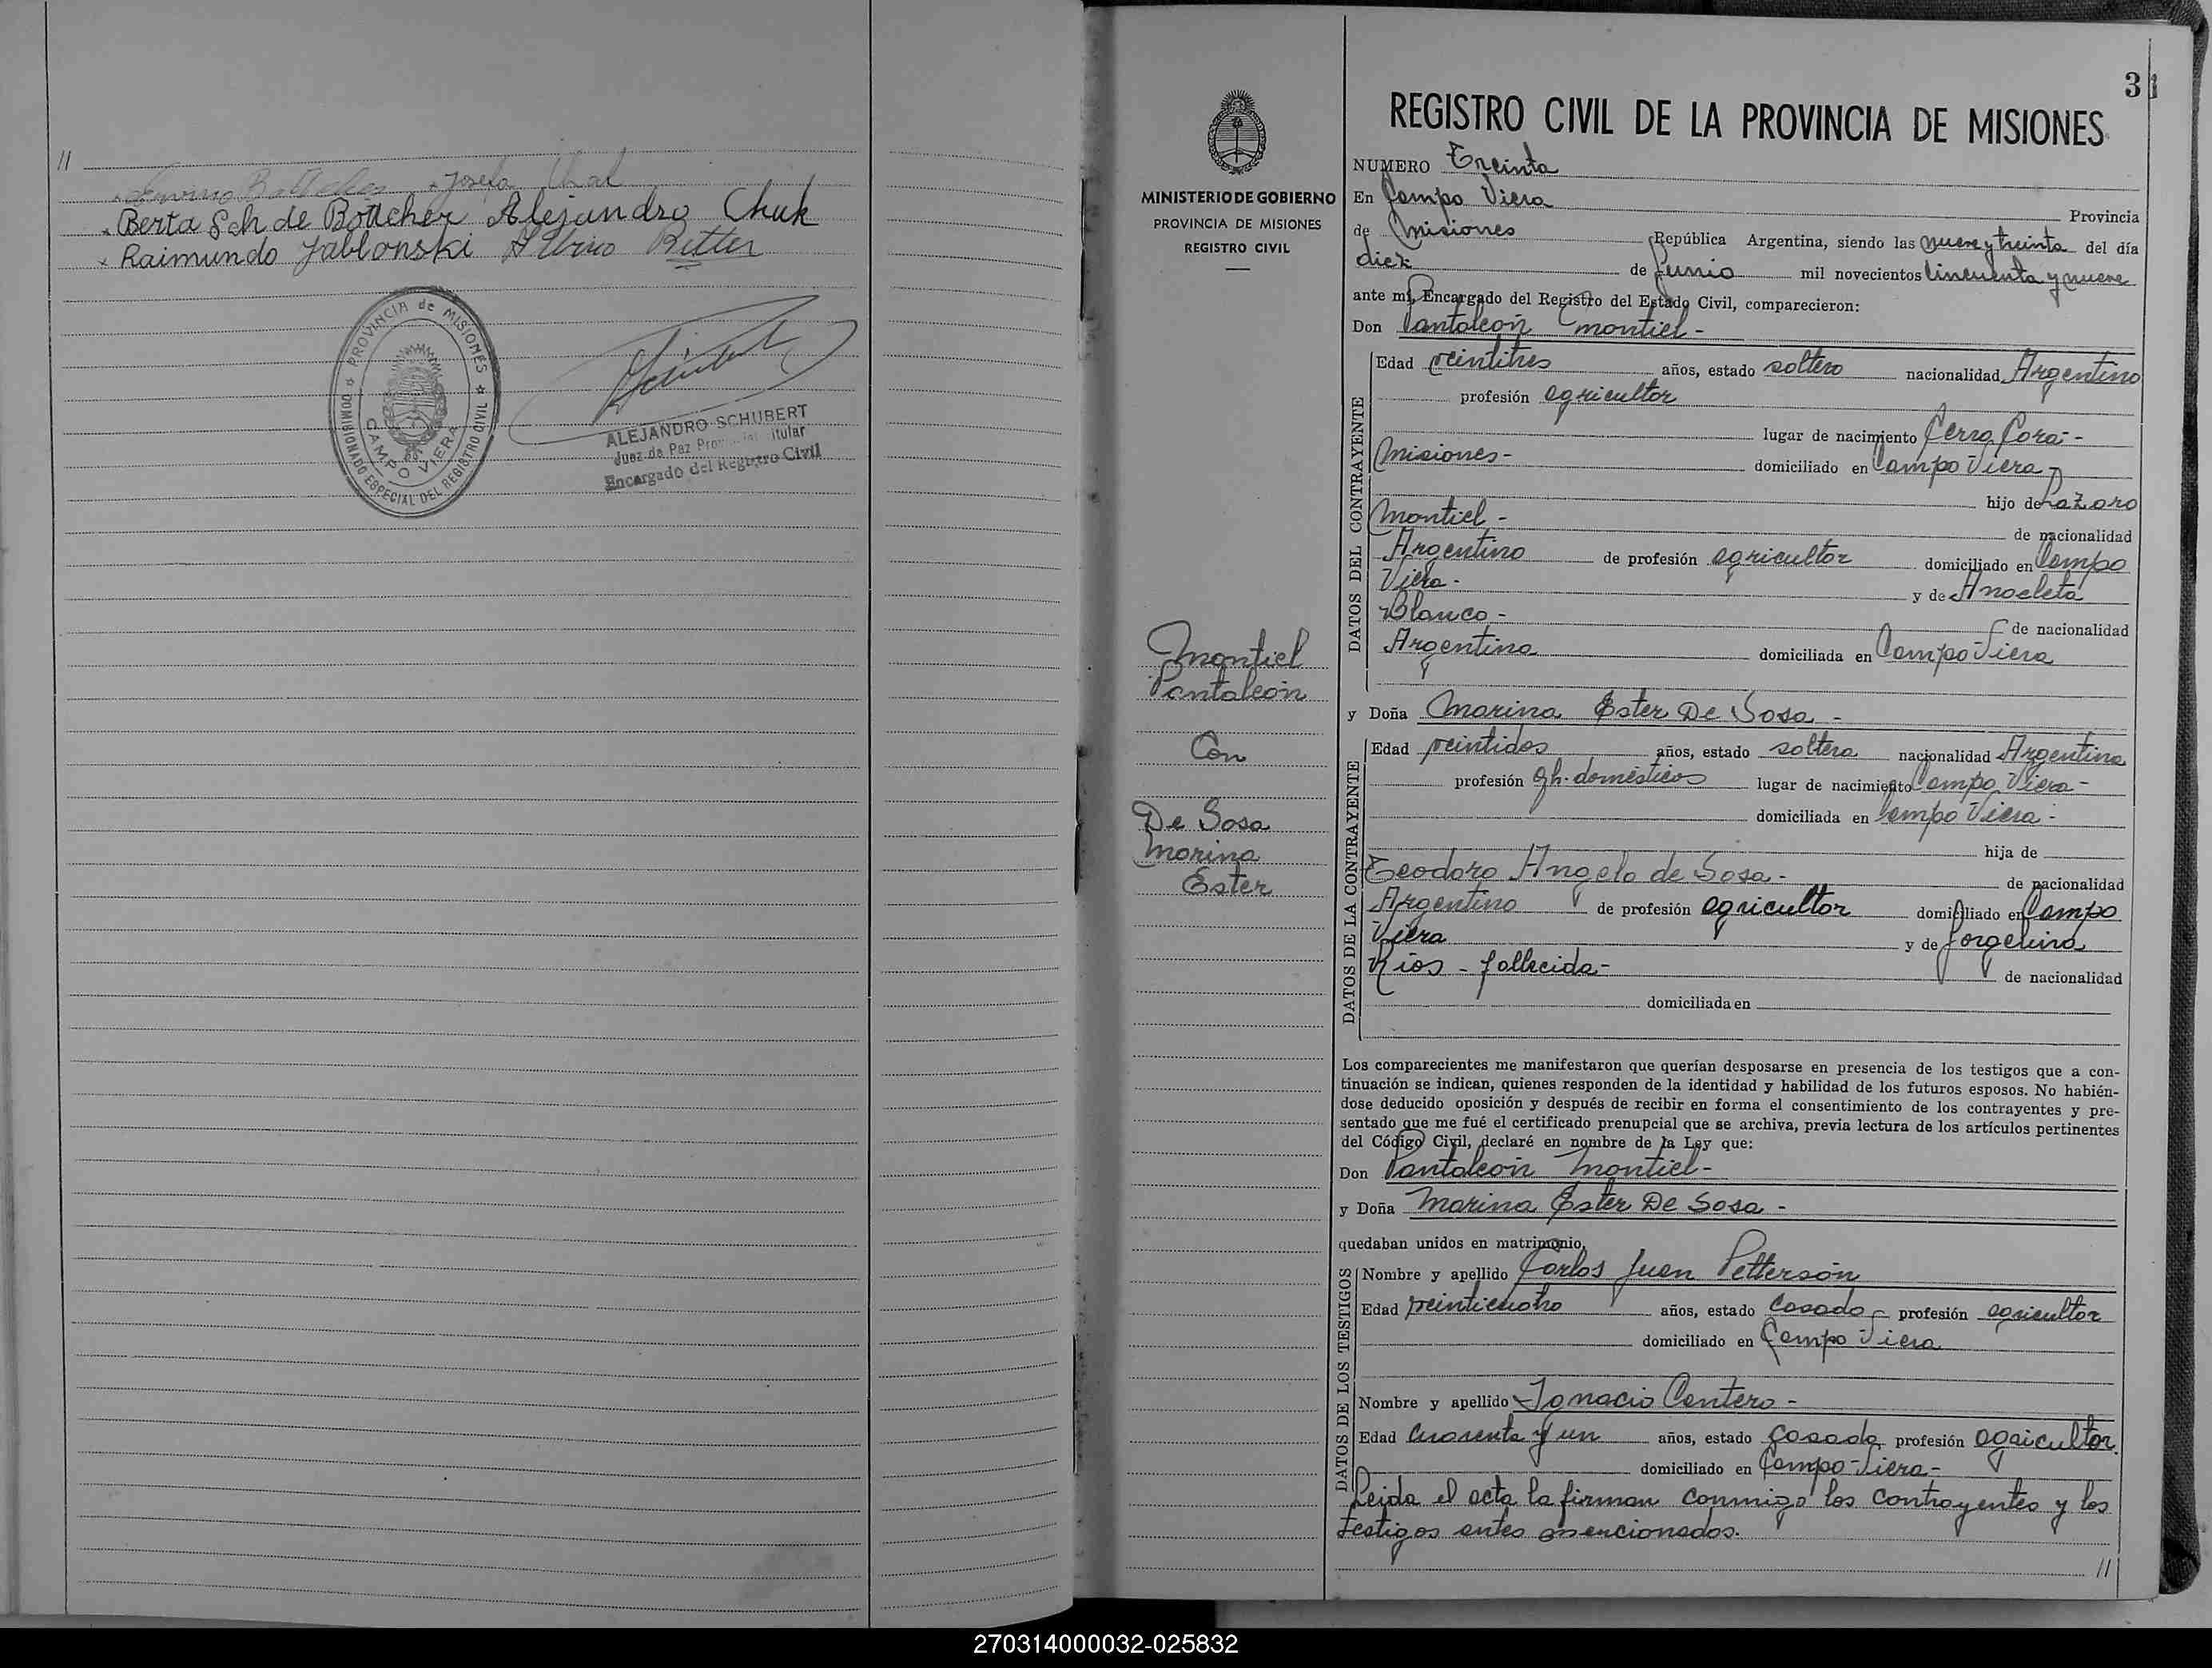 //
Josefa
Berta Sch de Bottcher Alejandro Chuk
Raimundo Jablonski Silvino Ritter
PROVINCIA de MISIONES
COMISIONADO ESPECIAL DEL REGISTRO CIVIL
CAMPO VIERA
ALEJANDRO SCHUBERT
Juez de Paz Titular
Encargado del Registro Civil
3
MINISTERIO DE GOBIERNO
PROVINCIA DE MISIONES
REGISTRO CIVIL
Montiel
Pantaleón
Con
De Sosa
Marina
Ester
REGISTRO CIVIL DE LA PROVINCIA DE MISIONES
NUMERO Treinta
En Campo Viera Provincia
de Misiones República Argentina, siendo las nueve y treinta del día
diez de Junio mil novecientos cincuenta y nueve
ante mí, Encargado del Registro del Estado Civil, comparecieron:
Don Pantaleón Montiel -
DATOS DEL CONTRAYENTE
Edad veintitres años, estado soltero nacionalidad Argentino
profesión agricultor
lugar de nacimiento Cerro Corá -
Misiones - domiciliado en Campo Viera -
hijo de Lázaro
Montiel - de nacionalidad
Argentino de profesión agricultor domiciliado en Campo
Viera - y de Anacleta
Blanco - de nacionalidad
Argentina domiciliada en Campo Viera
y Doña Marina Ester De Sosa -
DATOS DE LA CONTRAYENTE
Edad veintidos años, estado soltera nacionalidad Argentina
profesión qh. domésticos lugar de nacimiento Campo Viera -
domiciliada en Campo Viera -
hija de
Teodoro Angelo de Sosa - de nacionalidad
Argentino de profesión agricultor domiciliado en Campo
Viera y de Jorgelina
Ríos - fallecida - de nacionalidad
domiciliada en
Los comparecientes me manifestaron que querían desposarse en presencia de los testigos que a con-
tinuación se indican, quienes responden de la identidad y habilidad de los futuros esposos. No habién-
dose deducido oposición y después de recibir en forma el consentimiento de los contrayentes y pre-
sentado que me fué el certificado prenupcial que se archiva, previa lectura de los artículos pertinentes
del Código Civil, declaré en nombre de la Ley que:
Don Pantaleón Montiel -
y Doña Marina Ester De Sosa -
quedaban unidos en matrimonio,
DATOS DE LOS TESTIGOS
Nombre y apellido Carlos Juan Pettersón
Edad veinticuatro años, estado Casado - profesión agricultor
domiciliado en Campo Viera
Nombre y apellido Ignacio Centero -
Edad Cuarenta y un años, estado Casado profesión agricultor.
domiciliado en Campo-Viera -
Leida el acta la firman conmigo los contrayentes y los
testigos antes mencionados.
//
270314000032-025832